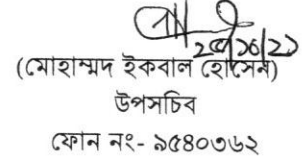 ২৫/১০/২১
(মোহাম্মদ ইকবাল হোসেন)
উপসচিব
ফোন নং- ৯৫৪০৩৬২